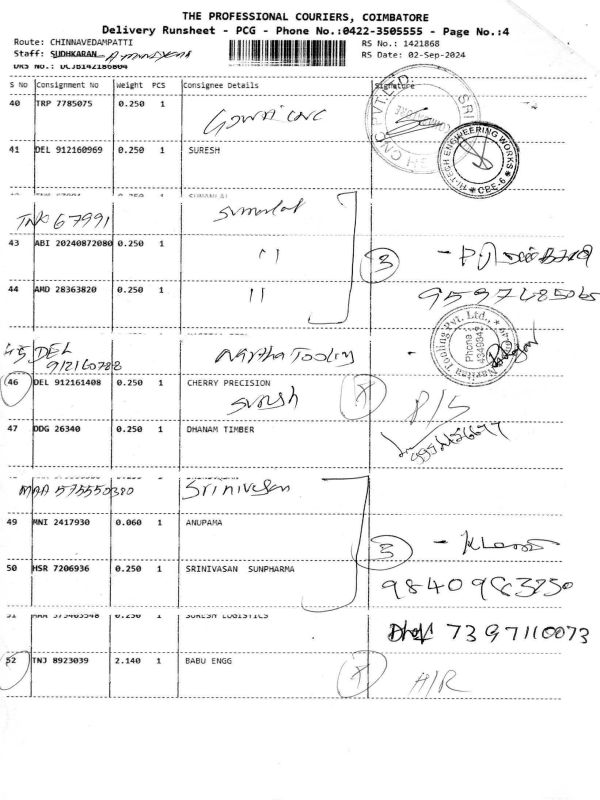 THE PROFESSIONAL COURIERS, COIMBATORE
Delivery Runsheet - PCG - Phone No.:0422-3505555 - Page No.:4
Route: CHINNAVEDAMPATTI
RS No.: 1421868
Staff: SUDHKARAN
RS Date: 02-Sep-2024
DRS No.: DCJB142186804
S No Consignment No Weight PCS Consignee Details Signature
40 TRP 7785075 0.250 1
41 DEL 912160969 0.250 1 SURESH
HI-TECH ENGINEERING WORKS CBE-6
TNK 67991
43 ABI 20240872080 0.250 1 "
3
44 AMD 28363820 0.250 1 "
45 DEL 912160788 Nartha Tooling
Tooling Pvt. Ltd.,
Phone
46 DEL 912161408 0.250 1 CHERRY PRECISION
Suresh
P/S
47 DDG 26340 0.250 1 DHANAM TIMBER
MAA 575550380 Srinivasan
49 MNI 2417930 0.060 1 ANUPAMA
3
50 HSR 7206936 0.250 1 SRINIVASAN SUNPHARMA
51 MAA 575403548 0.250 1 SURESH LOGISTICS
7397110073
52 TNJ 8923039 2.140 1 BABU ENGG